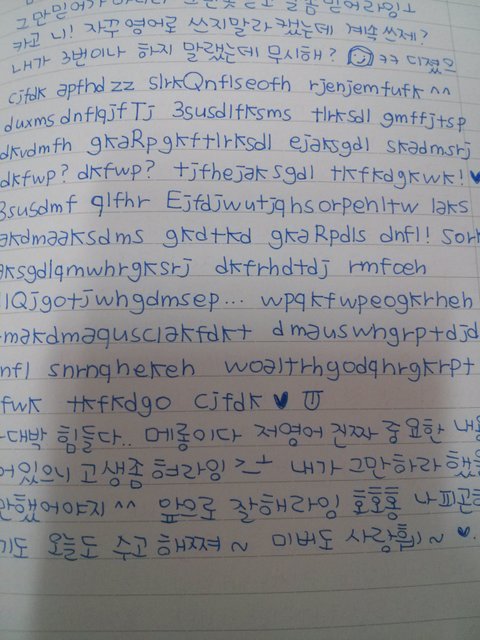 그만믿어
카고 니! 자꾸 영어로 쓰지말라 캤는데 계속 쓰제?
내가 3번이나 하지 말랬는데 무시해? ㅋㅋ 디졌으
cjfdk apfhd zz slrkQnflseofh rjenjemfufk ^^
duxms dnflqjfTj 3susdlfksms tlrksdl gmffjtsp
dkvdmfh gkaRpgkftlrksdl ejaksgdl skadmsrj
dkfwp? dkfwp? tjfhejaksgdl tkfkdgkwk! ♥
3susdmf qlfhr Ejfdjwutjqhsorpenltw laks
akdmaaksdms gkdtkd gkaRpdls dnfl! sork
aksgdlqmwhrgksrj dkfrhdtdj rmfceh
lQjgotjwhgdmsep... wpqkfwpeogkrheh
makdmaqusclakfdkt dmauswhgrptdjd
nfl snrnqhekeh woaltrhgodqhrgkrpt
fwk tkfkdgo cjfdk ♥
대박 힘들다.. 메롱이다 저영어 진짜 중요한 내용
어있으니 고생좀 혀라잉 >_+ 내가 그만하라 했을
안했어야지 ^^ 앞으로 잘해라잉 호호홍 나피곤하
기도 오늘도 수고해쪄~ 미버도 사랑흡니~ ♥.